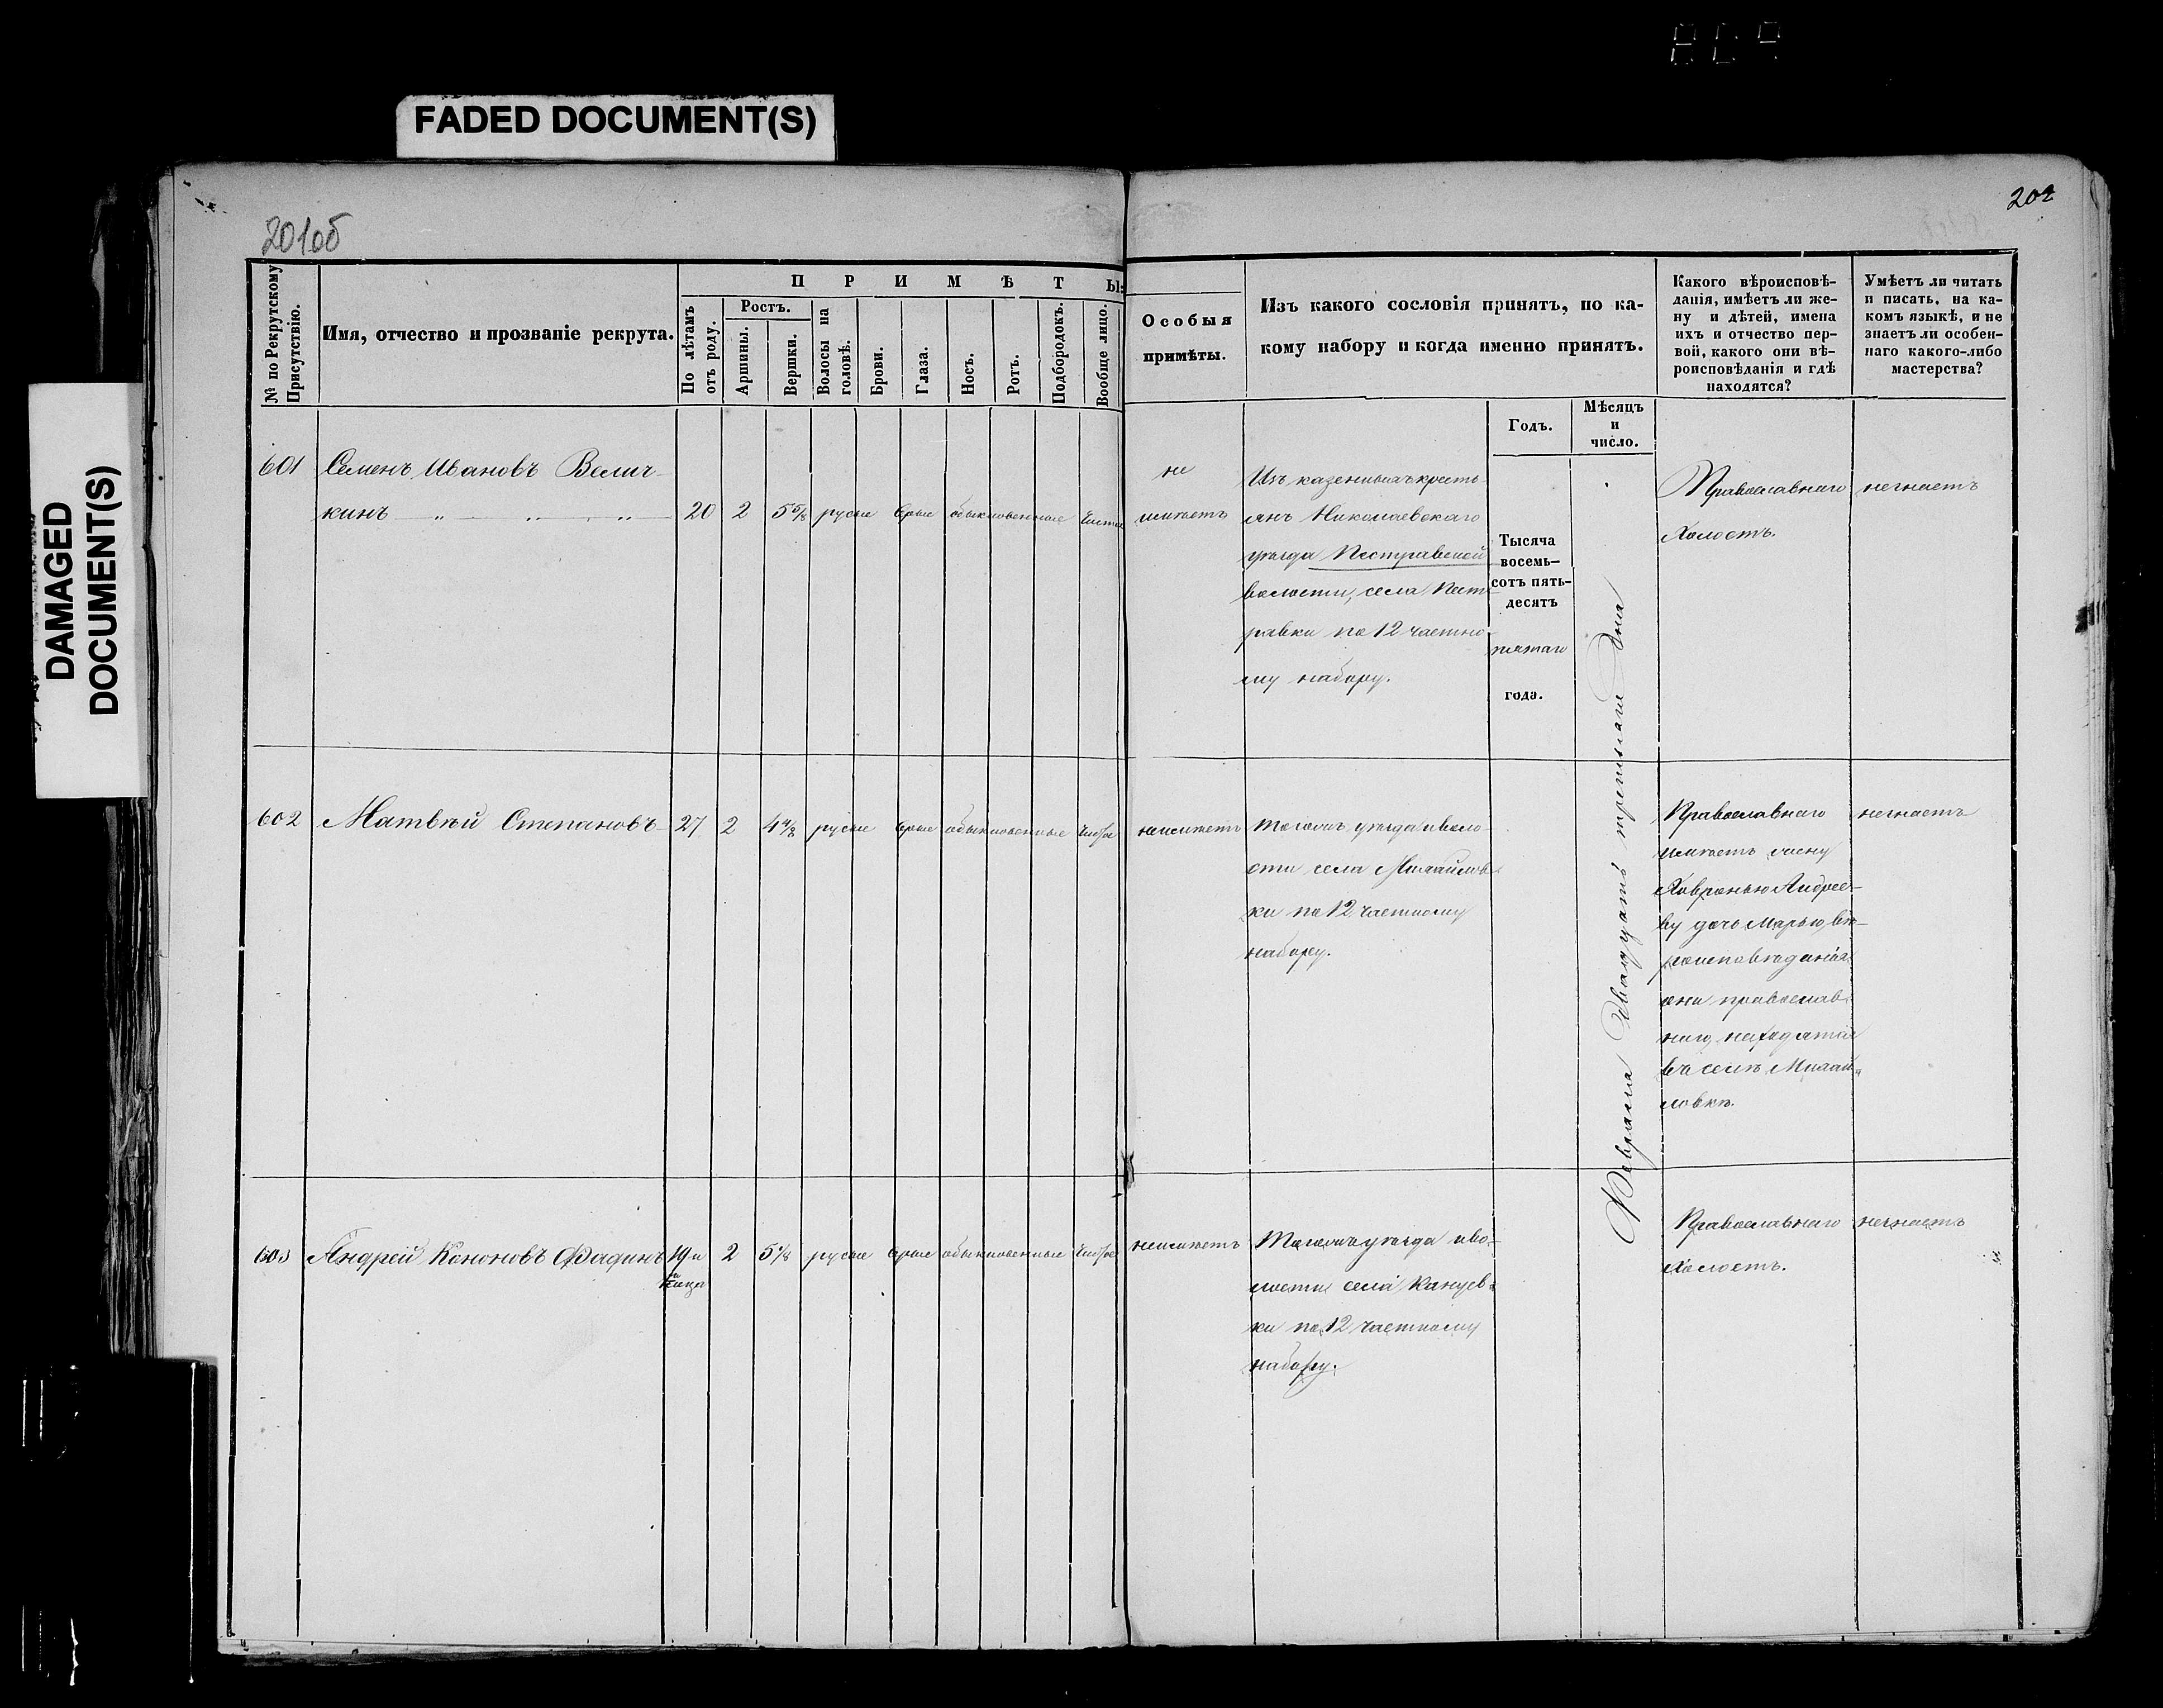 FADED DOCUMENT(S)
DAMAGED
DOCUMENT(S)
201об
202
№ по Рекрутскому
Присутствію.
Имя, отчество и прозваніе рекрута.
ПРИМѢТЫ:
По лѣтамъ
отъ роду.
Ростъ.
Аршины.
Вершки.
Волосы на
головѣ.
Брови.
Глаза.
Носъ.
Ротъ.
Подбородокъ.
Вообще лицо.
Особыя
примѣты.
Изъ какого сословія принятъ, по ка-
кому набору и когда именно принятъ.
Годъ.
Мѣсяцъ
и
число.
Какого вѣроисповѣ-
данія, имѣетъ ли же-
ну и дѣтей, имена
ихъ и отчество пер-
вой, какого они вѣ-
роисповѣданія и гдѣ
находятся?
Умѣетъ ли читать
и писать, на ка-
комъ языкѣ, и не
знаетъ ли особен-
наго какого-либо
мастерства?
601
Семенъ Ивановъ Велич-
кинъ
20 2 5 5/8 русые сѣрые обыкновенные чистое
не
имѣетъ
Изъ казенныхъ кресть-
янъ Николаевскаго
уѣзда Пестравской
волости, села Пест-
равки по 12 частно-
му набору.
Тысяча
восемь-
сотъ пять-
десятъ
пятаго
года.
Февраля двадцать третьяго дня
Православнаго
Холостъ.
незнаетъ
602
Матвѣй Степановъ
27 2 4 4/8 русые сѣрые обыкновенные чистое
неимѣетъ
Тогожъ уѣзда и воло-
сти села Михайлов-
ки по 12 частному
набору.
Православнаго
имѣетъ жену
Хавронью Андрее-
ву дочь Марью, вѣ-
роисповѣданія
они православ-
наго, находятся
въ селѣ Михай-
ловкѣ.
незнаетъ
603
Андрей Кононовъ Фадинъ
19 и
2 5 1/8 русые сѣрые обыкновенные чистое
неимѣетъ
Тогожъ уѣзда и во-
лости села Кануев-
ки по 12 частному
набору.
Православнаго
Холостъ.
незнаетъ